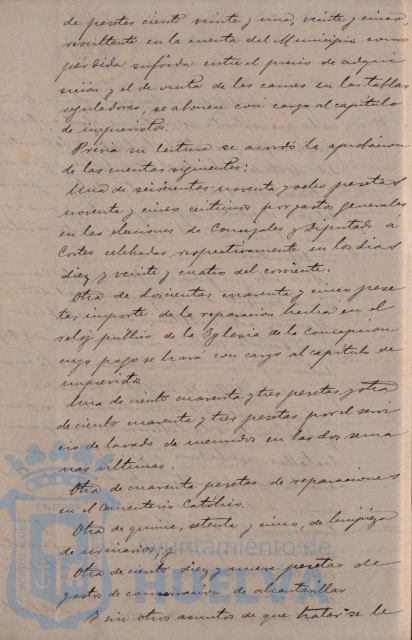 de pesetas ciento veinte y una, veinte y cinco
resultante en la cuenta del Municipio como
pérdida sufrida entre el precio de adqui
sición y el de venta de las carnes en las tablas
reguladoras, se abonen con cargo al capítulo
de imprevistos.
Prévia su lectura se acordó la aprobación
de las cuentas siguientes:
Una de seiscientas noventa y ocho pesetas
noventa y cinco céntimos por gastos generales
en las elecciones de Concejales y Diputado á
Cortes celebradas respectivamente en los dias
diez y veinte y cuatro del corriente.
Otra de doscientas cuarenta y cinco pese
tas, importe de la reparación hecha en el
reloj publico de la Iglesia de la Concepcion
cuyo pago se hará con cargo al capítulo de
imprevistos.
Una de ciento cuarenta y tres pesetas y otra
de ciento cuarenta y tres pesetas por el servi
cio de lavado de menudos en las dos sema
nas ultimas.
Otra de cuarenta pesetas de reparaciones
en el Cementerio Católico.
Otra de quince, setenta y cinco, de limpieza
de urinarios; y
Otra de ciento diez y nueve pesetas de
gastos de conservacion de alcantarillas
Y sin otros asuntos de que tratar se le
Ayuntamiento de
HUELVA